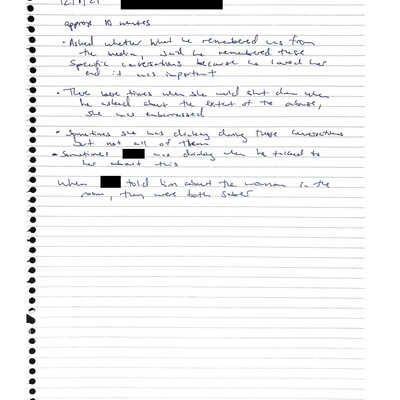 12/1/21
approx 10 minutes
• Asked whether what he remembered was from
the media, said he remembered these
specific conversations because he loved her
and it was important
• There were times when she would shut down when
he asked about the extent of the abuse,
she was embarrassed
• Sometimes she was drinking during these conversations
but not all of them
• Sometimes was drinking when he talked to
her about this
When told him about the woman in the
room, they were both sober